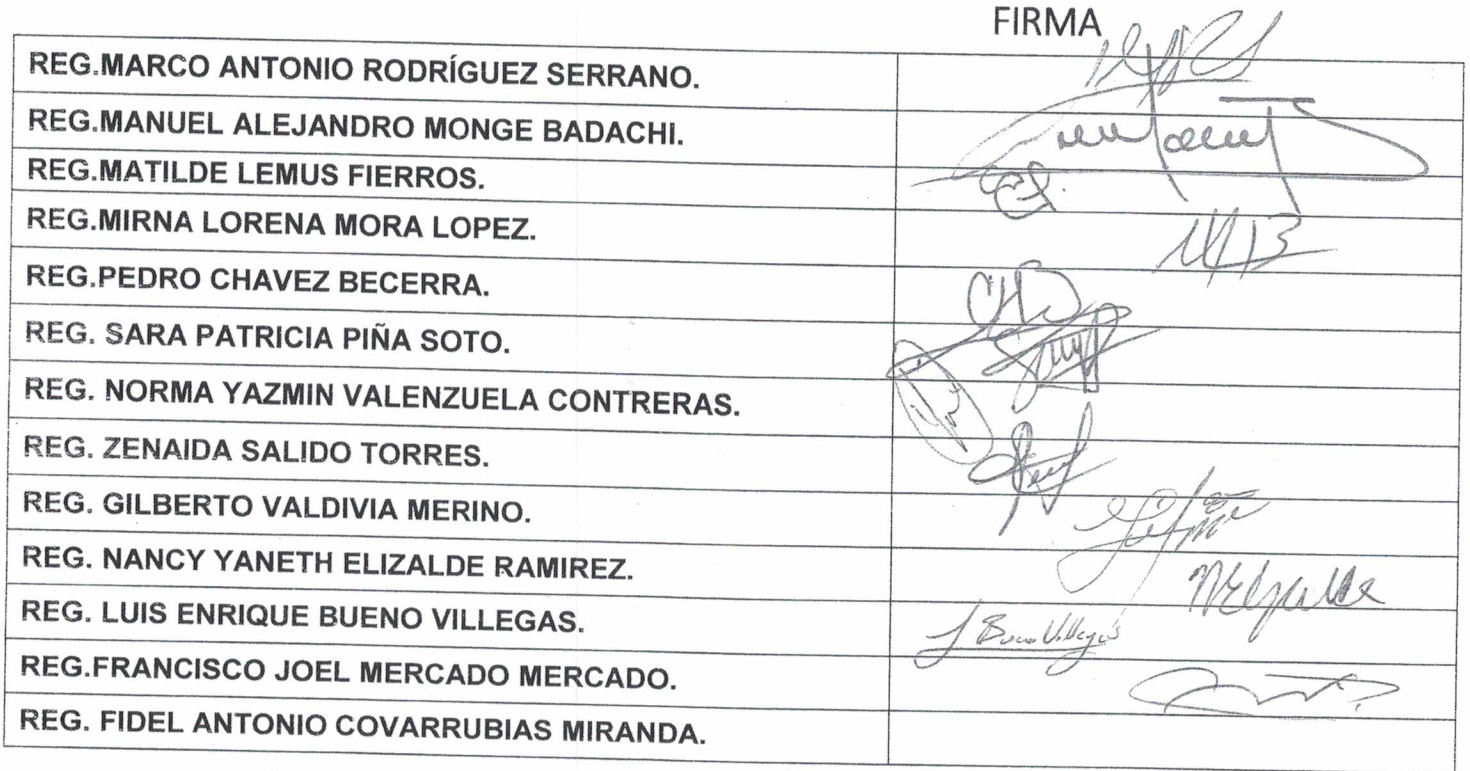 FIRMA
REG.MARCO ANTONIO RODRÍGUEZ SERRANO.
REG.MANUEL ALEJANDRO MONGE BADACHI.
REG.MATILDE LEMUS FIERROS.
REG.MIRNA LORENA MORA LOPEZ.
REG.PEDRO CHAVEZ BECERRA.
REG. SARA PATRICIA PIÑA SOTO.
REG. NORMA YAZMIN VALENZUELA CONTRERAS.
REG. ZENAIDA SALIDO TORRES.
REG. GILBERTO VALDIVIA MERINO.
REG. NANCY YANETH ELIZALDE RAMIREZ.
REG. LUIS ENRIQUE BUENO VILLEGAS.
REG.FRANCISCO JOEL MERCADO MERCADO.
REG. FIDEL ANTONIO COVARRUBIAS MIRANDA.